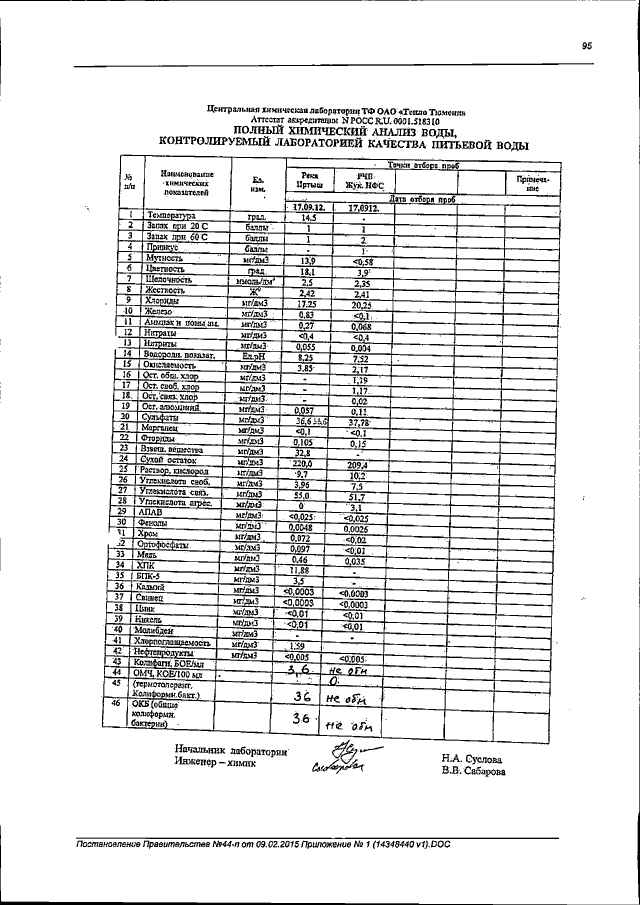 95
Центральная химическая лаборатория ТФ ОАО «Тепло Тюмени»
Аттестат аккредитации N РОСС RU. 0001.518310
ПОЛНЫЙ ХИМИЧЕСКИЙ АНАЛИЗ ВОДЫ,
КОНТРОЛИРУЕМЫЙ ЛАБОРАТОРИЕЙ КАЧЕСТВА ПИТЬЕВОЙ ВОДЫ
Точки отбора проб
№ п/п Наименование химических показателей Ед. изм. Река Иртыш РЧВ Жук. НФС Примеча-ние
Дата отбора проб
17.09.12. 17.0912.
1 Температура град. 14,5 -
2 Запах при 20 С баллы 1 1
3 Запах при 60 С баллы 1 2
4 Привкус баллы - 1
5 Мутность мг/дм3 13,9 <0,58
6 Цветность град 18,1 3,9
7 Щелочность ммоль/дм³ 2,5 2,35
8 Жесткость Ж⁰ 2,42 2,41
9 Хлориды мг/дм3 17.25 20,25
10 Железо мг/дм3 0,83 <0,1
11 Аммиак и ионы ам. мг/дм3 0,27 0,068
12 Нитраты мг/дм3 <0,4 <0,4
13 Нитриты мг/дм3 0,055 0,004
14 Водородн. показат. Ед.рН 8,25 7,52
15 Окисляемость мг/дм3 3,85 2,17
16 Ост. общ. хлор мг/дм3 - 1,19
17 Ост. своб. хлор мг/дм3 - 1,17
18. Ост. связ. хлор мг/дм3 - 0,02
19 Ост. алюминий мг/дм3 0,057 0,11
20 Сульфаты мг/дм3 36,6 37,78
21 Марганец мг/дм3 <0,1 <0,1
22 Фториды мг/дм3 0,105 0,15
23 Взвеш. вещества мг/дм3 32,8 -
24 Сухой остаток мг/дм3 220,0 209,4
25 Раствор. кислород мг/дм3 9,7 10,2
26 Углекислота своб. мг/дм3 3,96 7,5
27 Углекислота связ. мг/дм3 55,0 51,7
28 Углекислота агрес. мг/дм3 0 3,1
29 АПАВ мг/дм3 <0,025 <0,025
30 Фенолы мг/дм3 0,0048 0,0026
31 Хром мг/дм3 0,072 <0,02
32 Ортофосфаты мг/дм3 0,097 <0,01
33 Медь мг/дм3 0,46 0,035
34 ХПК мг/дм3 11,88 -
35 БПК-5 мг/дм3 3,5 -
36 Кадмий мг/дм3 <0,0003 <0,0003
37 Свинец мг/дм3 <0,0003 <0,0003
38 Цинк мг/дм3 <0,01 <0,01
39 Никель мг/дм3 <0,01 <0,01
40 Молибден мг/дм3 - -
41 Хлорпоглащаемость мг/дм3 1.59
42 Нефтепродукты мг/дм3 <0,005 <0,005
43 Колифаги, БОЕ/мл 3,6 не обн
44 ОМЧ, КОЕ/100 мл 0
45 (термотолерант. Колиформн.бакт.) 36 не обн
46 ОКБ (общие колиформн. бактерии) 36 не обн
Начальник лаборатории Н.А. Суслова
Инженер – химик В.В. Сабарова
Постановление Правительства №44-п от 09.02.2015 Приложение № 1 (14348440 v1).DOC